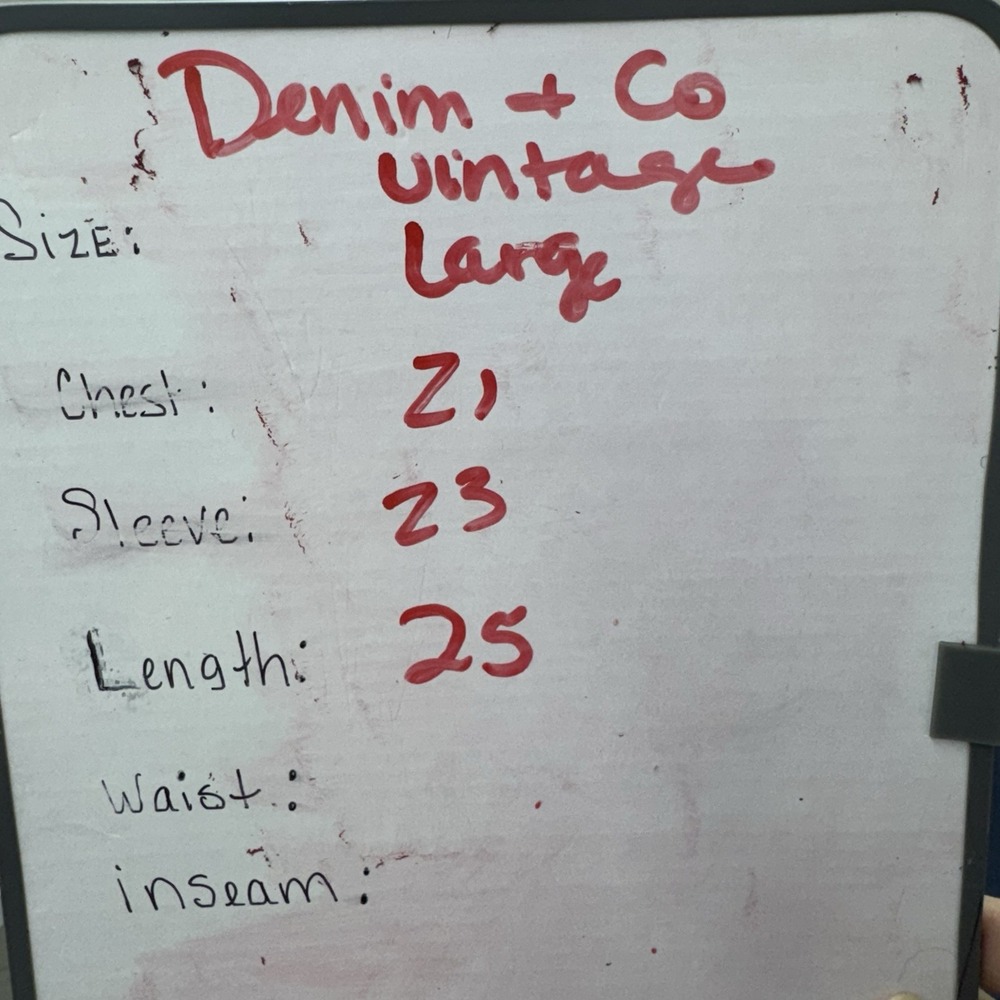 Denim + Co
vintage
Size: Large
Chest: 21
Sleeve: 23
Length: 25
Waist:
inseam: